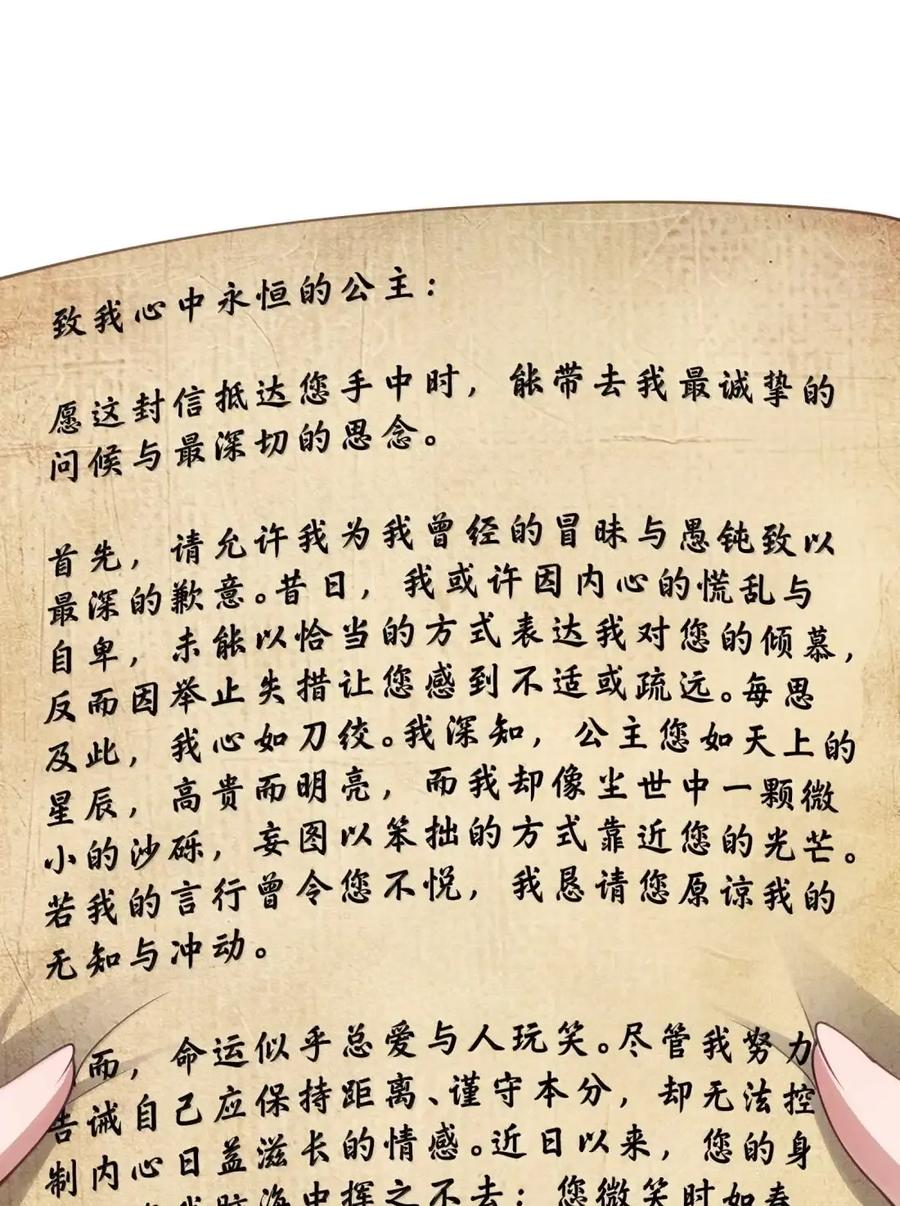 致我心中永恒的公主：
愿这封信抵达您手中时，能带去我最诚挚的
问候与最深切的思念。
首先，请允许我为我曾经的冒昧与愚钝致以
最深的歉意。昔日，我或许因内心的慌乱与
自卑，未能以恰当的方式表达我对您的倾慕，
反而因举止失措让您感到不适或疏远。每思
及此，我心如刀绞。我深知，公主您如天上的
星辰，高贵而明亮，而我却像尘世中一颗微
小的沙砾，妄图以笨拙的方式靠近您的光芒。
若我的言行曾令您不悦，我恳请您原谅我的
无知与冲动。
而，命运似乎总爱与人玩笑。尽管我努力
告诫自己应保持距离、谨守本分，却无法控
制内心日益滋长的情感。近日以来，您的身
我脑海中挥之不去；您微笑时如春